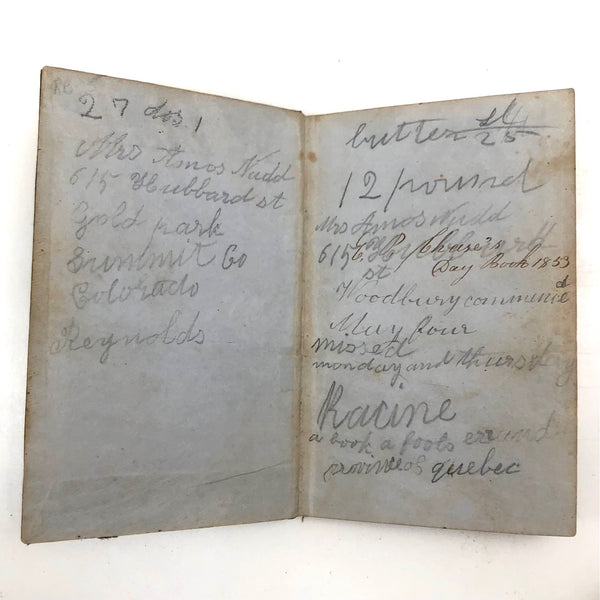 27 dos 1
Mrs Amos Nudd
615 Hubbard st
Gold park
Summit Co
Colorado
Reynolds
butter
25
12 pound
Mrs Amos Nudd
615 Hubbard
C. P. Chase's
Day Book 1853
st
Woodbury commenced
May four
missed
monday and thursday
Racine
a book a fools errand
province of quebec